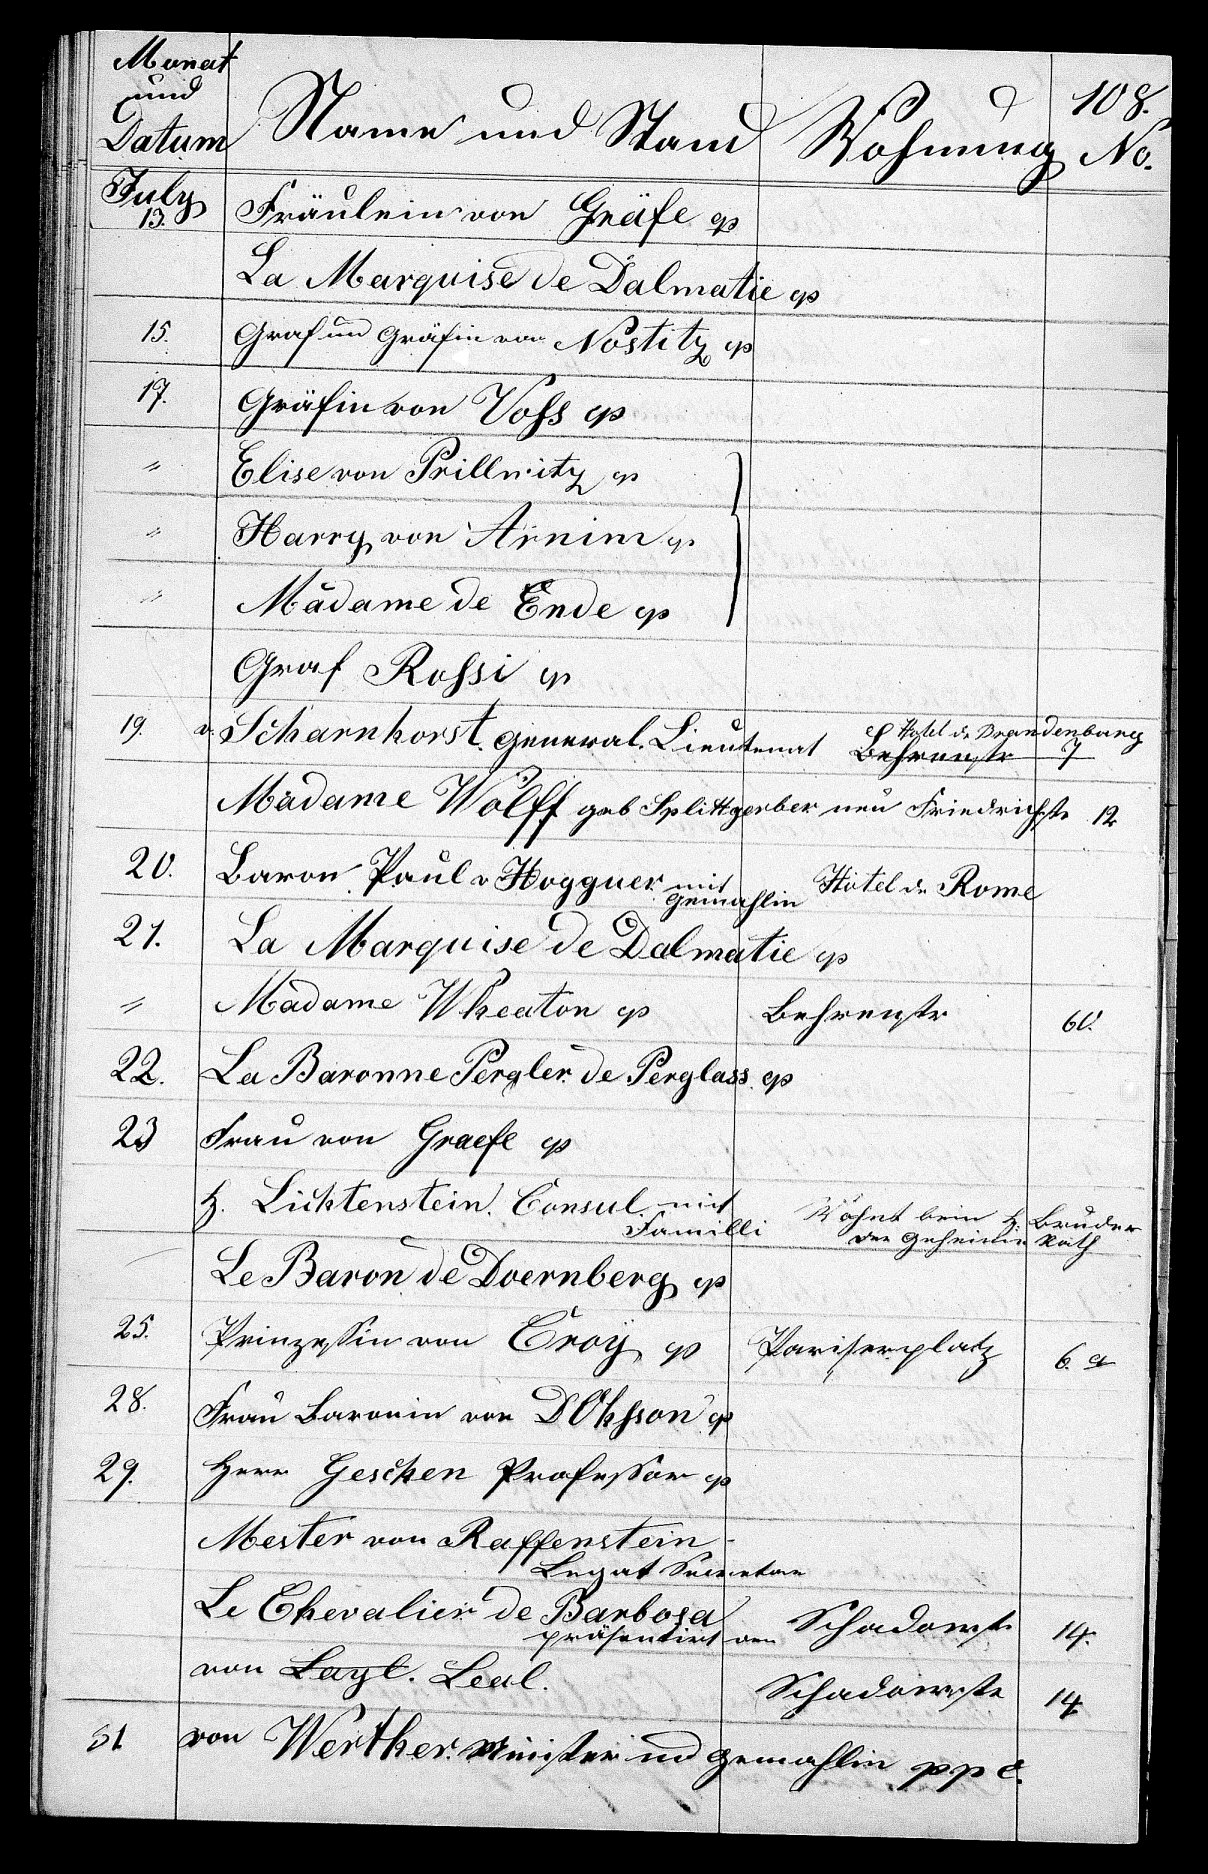 108.
Monat
und
Datum Name und Stand Wohnung No.
July
13. Fräulein von Gräfe cp
La Marquise de Dalmatie cp
15. Graf und Gräfin von Nostitz cp
17. Gräfin von Voss cp
" Elise von Prillwitz cp
" Harry von Arnim cp
" Madame de Ende cp
Graf Rossi cp
19. v. Scharnhorst. General. Lieutenat Hotel de Brandenburg
Behrenstr 7
Madame Wolff geb Splittgerber neu Friedrichstr 12
20. Baron Paul v Hogguer mit Hotel de Rome
Gemahlin
21. La Marquise de Dalmatie cp
" Madame Wheaton cp Behrenstr 60.
22. La Baronne Pergler de Perglass. cp
23 Frau von Graefe cp
H. Lichtenstein. Consul mit Wohnt beim H. Bruder
Familli den Geheimen Rath
Le Baron de Doernberg cp
25. Prinzessin von Croÿ cp Pariserplatz 6. a
28. Frau Baronin von D'Ohsson cp
29. Herr Geschen Professor cp
Mester von Raffenstein
Legat Secretair
Le Chevalier de Barbosa Schadowstr 14.
präsentirt von
von Layl. Leal. Schadowstr 14
31 von Werther. Minister und Gemahlin p p c.